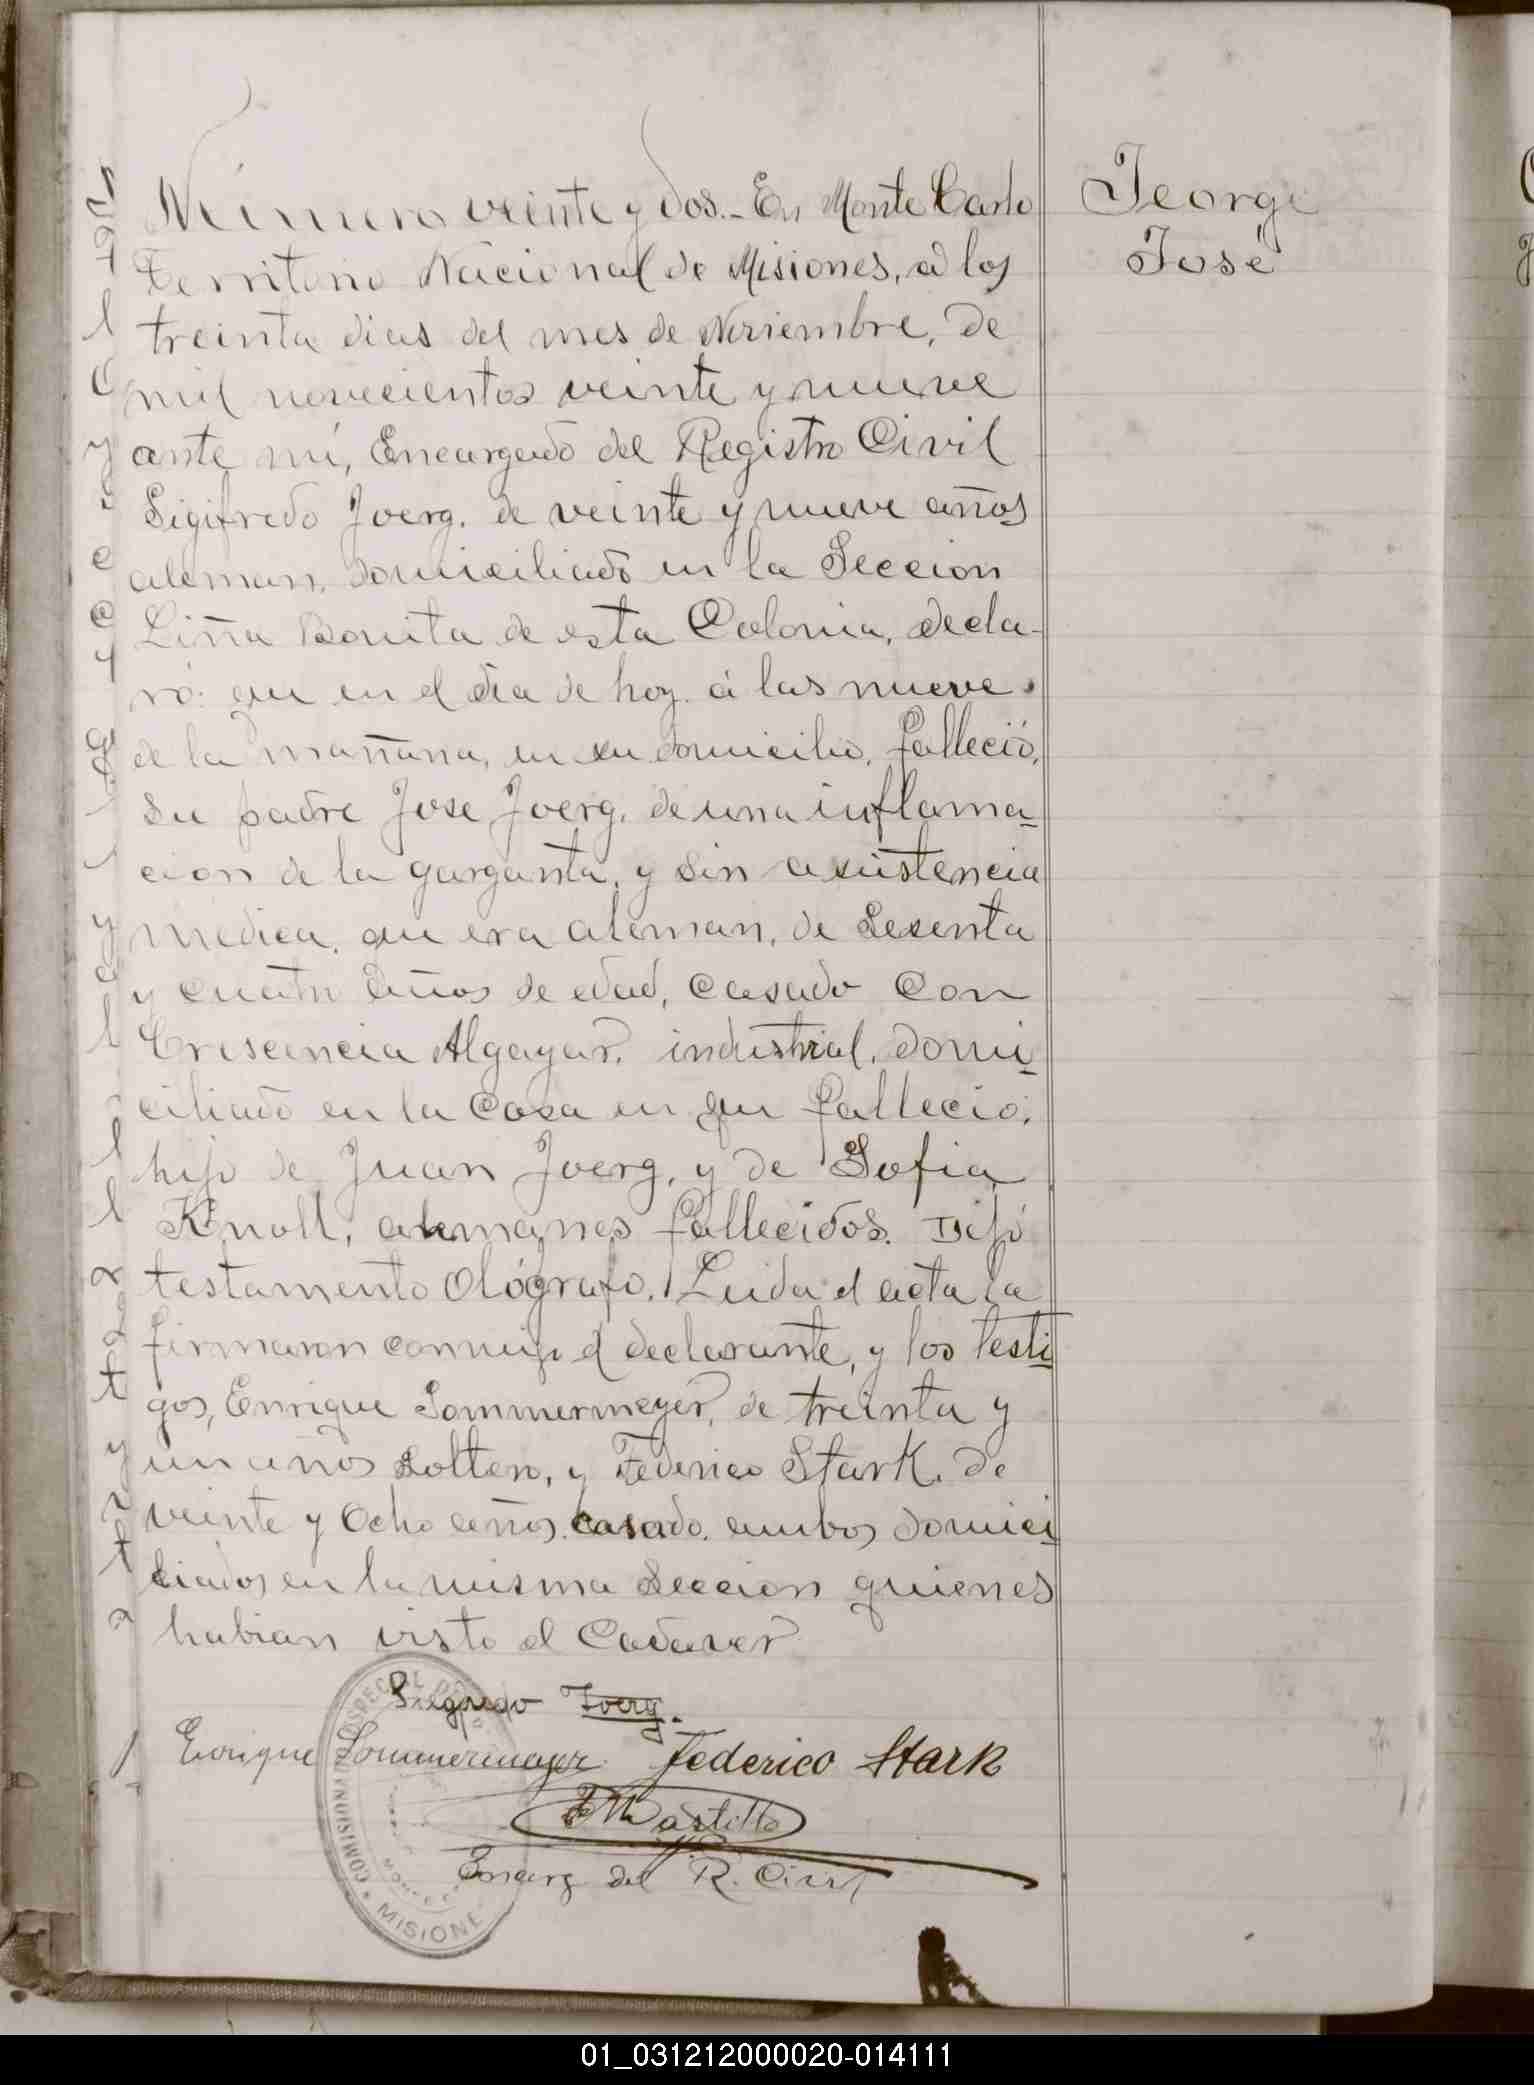 Número veinte y dos.- En Monte Carlo
Territorio Nacional de Misiones, á los
treinta dias del mes de Noviembre, de
mil novecientos veinte y nueve
ante mí, Encargado del Registro Civil
Sigifredo Joerg. de veinte y nueve años
aleman, domiciliado en la Seccion
Liña Bonita de esta Colonia, decla-
ró: que en el dia de hoy á las nueve
de la mañana, en su domicilio, falleció,
su padre Jose Joerg, de una inflama-
cion de la garganta, y sin asistencia
médica, que era aleman, de sesenta
y cuatro años de edad, casado con
Crescencia Algayar, industrial, domi-
ciliado en la casa en que fallecio;
hijo de Juan Joerg, y de Sofia
Knoll, alemanes fallecidos. Dejó
testamento Ológrafo. Leida el acta la
firmaron conmigo el declarante, y los testi-
gos, Enrique Sommermeyer, de treinta y
un años solten, y Federico Stark, de
veinte y Ocho años, casado, ambos domici-
liados en la misma Seccion quienes
habian visto el Cadaver
Joerg.
Enrique Sommermeyer Federico Stark
Castillo
Encarg del R. Civil
Jeorge
José
COMISIONADO ESPECIAL
MISIONE
01_031212000020-014111